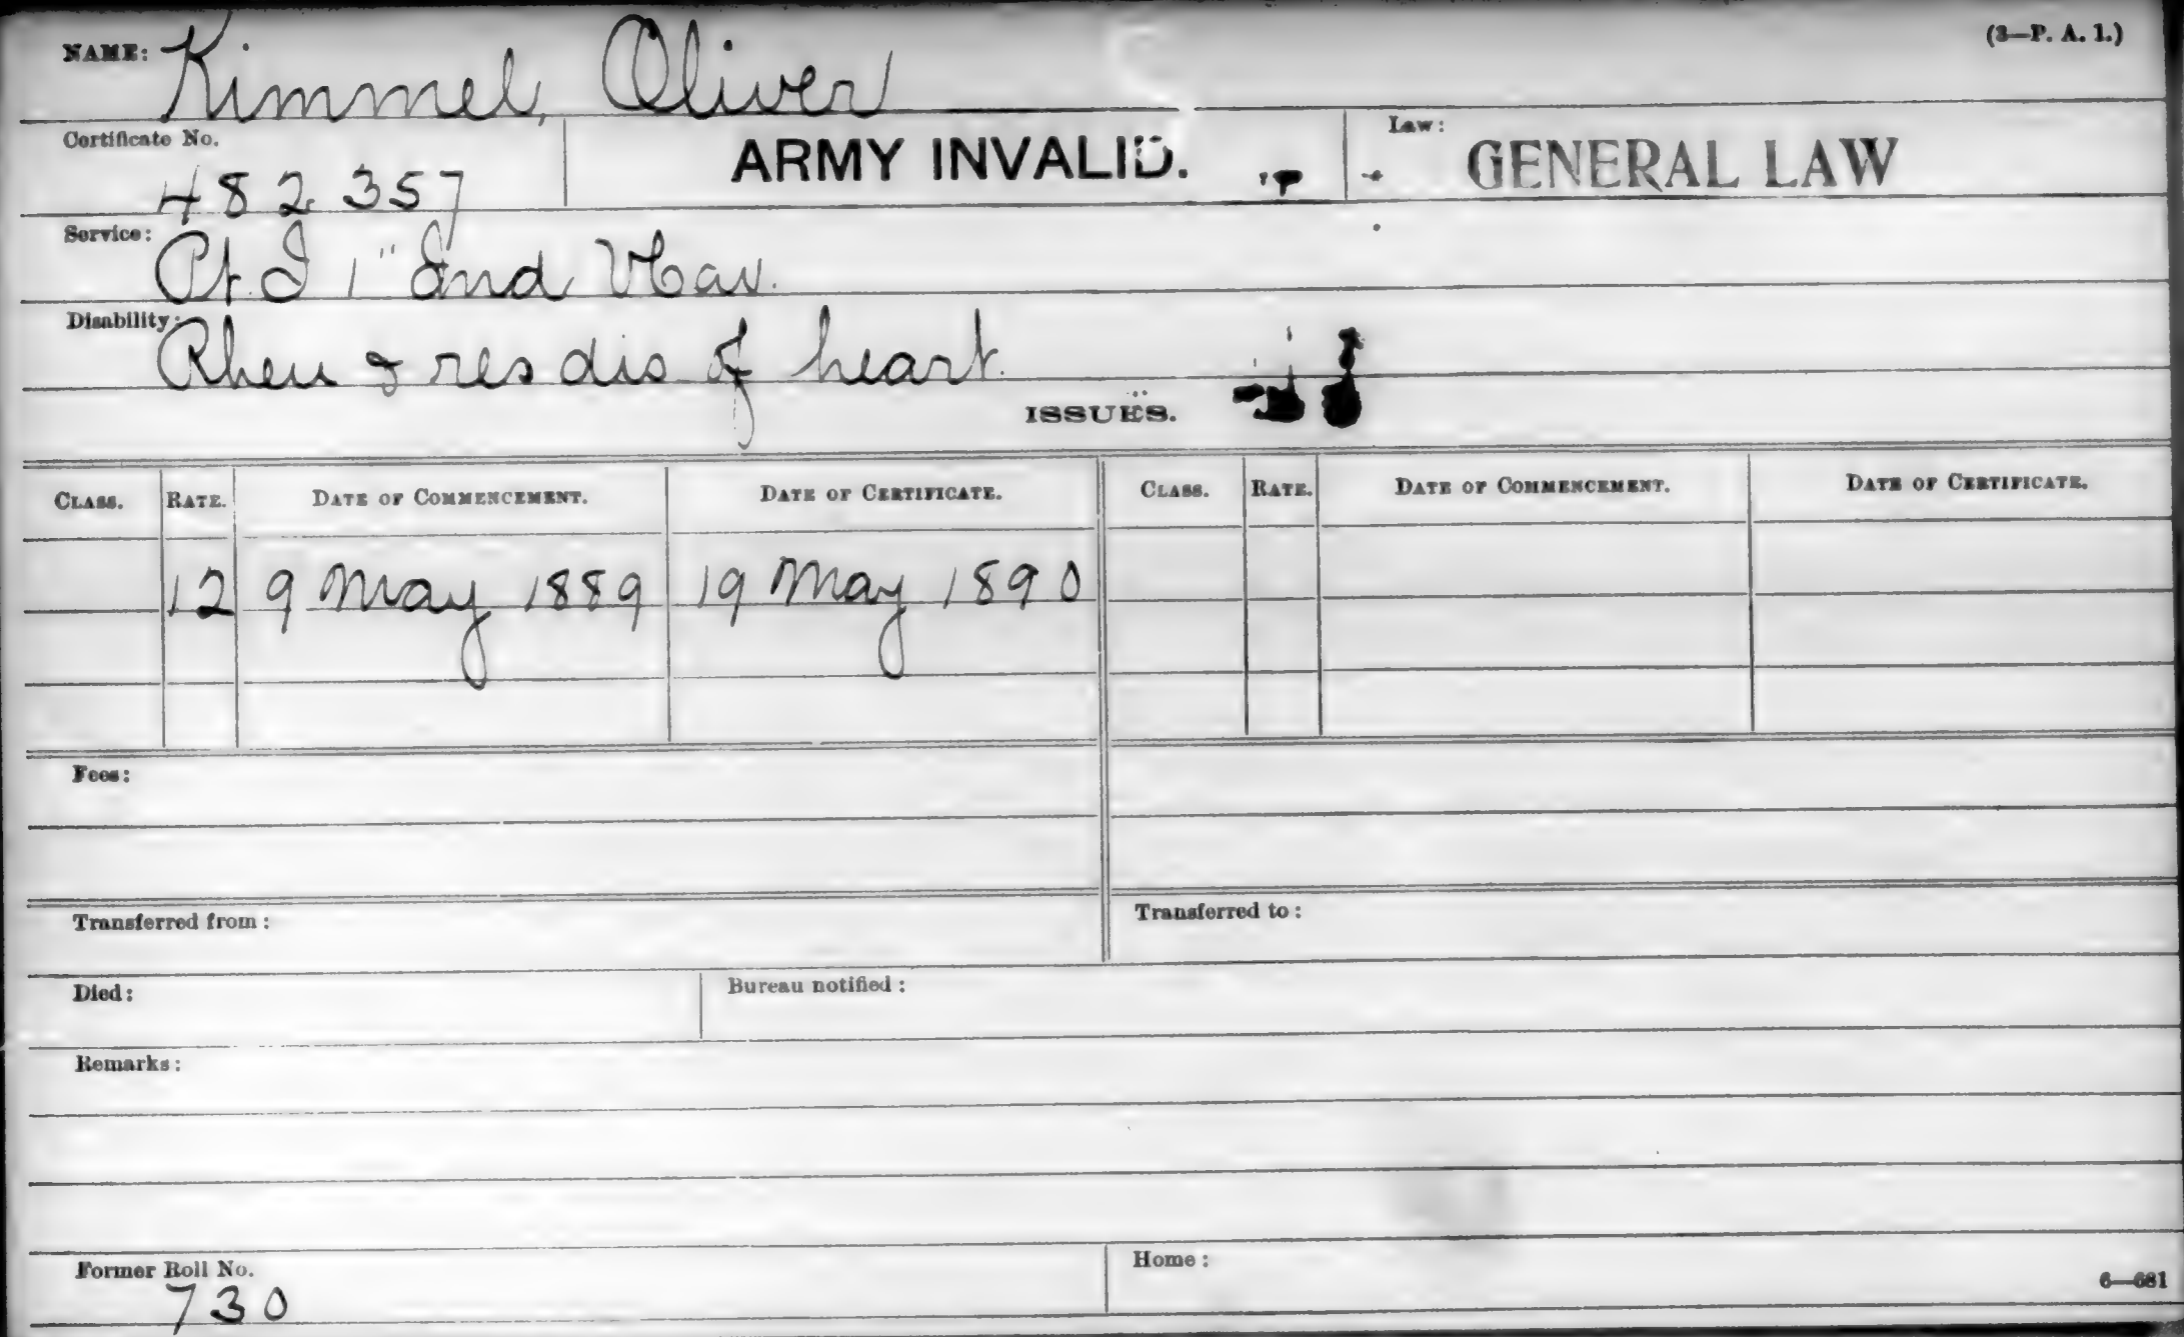 (3—P. A. 1.)
NAME: Kimmel, Oliver
Certificate No. 482 357
ARMY INVALID.
Law: GENERAL LAW
Service: Pt. I 1" Ind VCav.
Disability: Rheu & res dis of heart.
ISSUES.
CLASS. RATE. DATE OF COMMENCEMENT. DATE OF CERTIFICATE. CLASS. RATE. DATE OF COMMENCEMENT. DATE OF CERTIFICATE.
12 9 May 1889 19 May 1890
Fees:
Transferred from: Transferred to:
Died: Bureau notified:
Remarks:
Former Roll No. 730
Home:
6—681